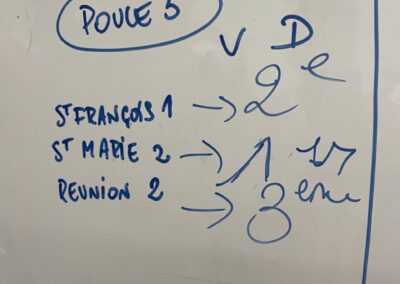 POULE 5
V D
ST FRANÇOIS 1 → 2e
ST MARIE 2 → 1er
REUNION 2 → 3eme